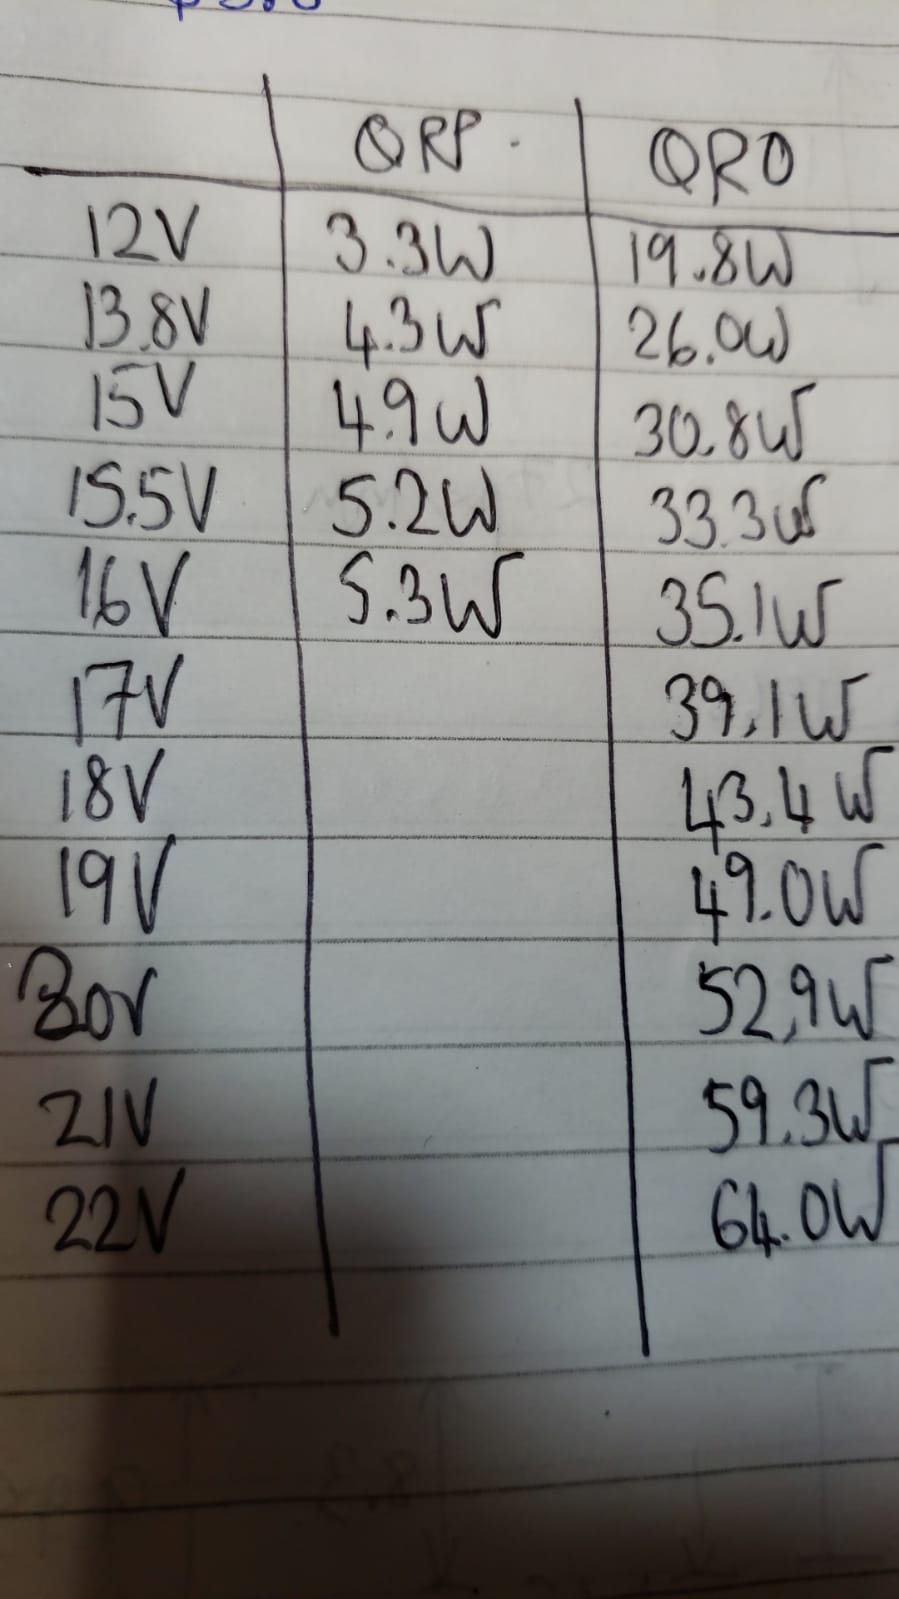 QRP. QRO
12V 3.3W 19.8W
13.8V 4.3W 26.0W
15V 4.9W 30.8W
15.5V 5.2W 33.3W
16V 5.3W 35.1W
17V 39.1W
18V 43.4W
19V 49.0W
20V 52.9W
21V 59.3W
22V 64.0W